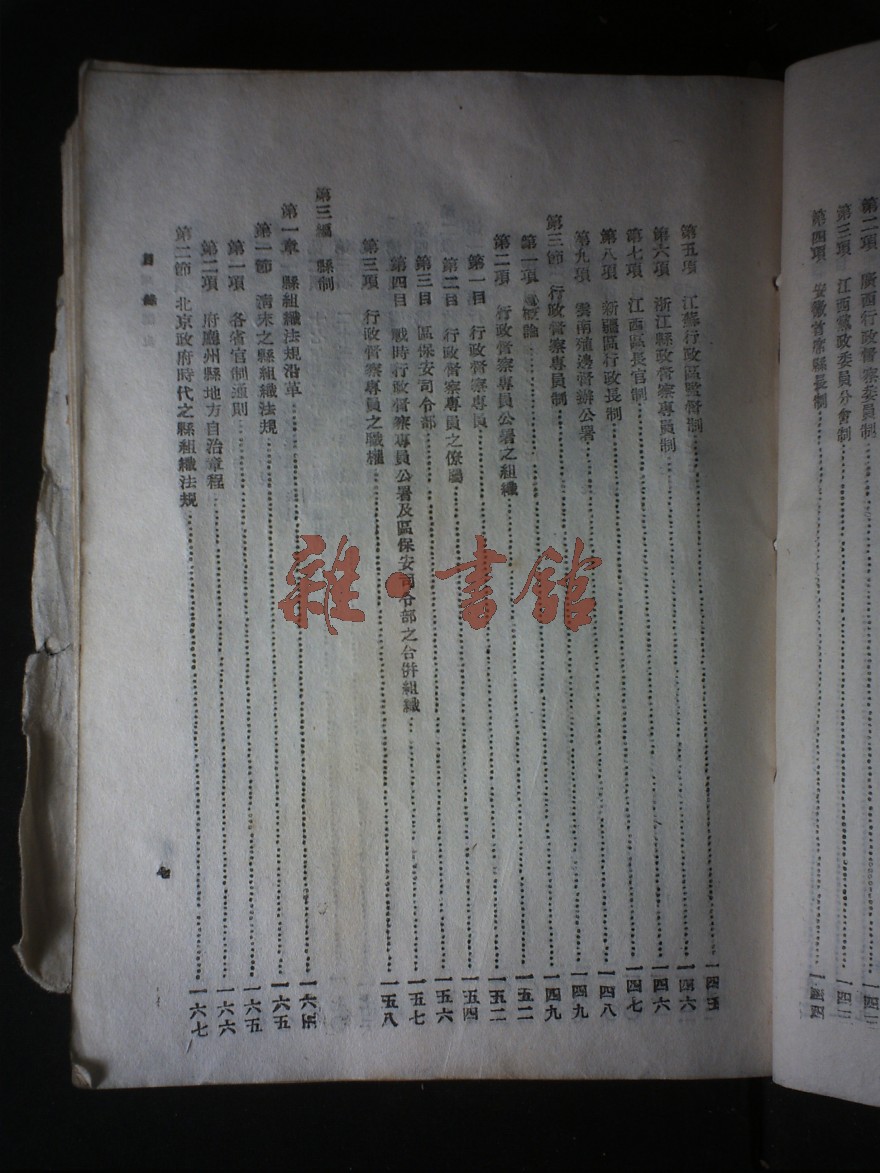 第二項 廣西行政督察委員制
第三項 江西黨政委員分會制
第四項 安徽首席縣長制 一四四
第五項 江蘇行政區監督制 一四五
第六項 浙江縣政督察專員制 一四六
第七項 江西區長官制 一四六
第八項 新疆區行政長制 一四七
第九項 雲南殖邊督辦公署 一四八
第三節 行政督察專員制 一四九
第一項 概論 一四九
第二項 行政督察專員公署之組織 一五二
第一目 行政督察專員 一五二
第二目 行政督察專員之僚屬 一五四
第三目 區保安司令部 一五六
第四目 戰時行政督察專員公署及區保安司令部之合併組織 一五七
第三項 行政督察專員之職權 一五八
第三編 縣制
第一章 縣組織法規沿革 一六五
第一節 清末之縣組織法規 一六五
第一項 各省官制通則 一六五
第二項 府廳州縣地方自治章程 一六六
第二節 北京政府時代之縣組織法規 一六七
目錄
七
雜·書館